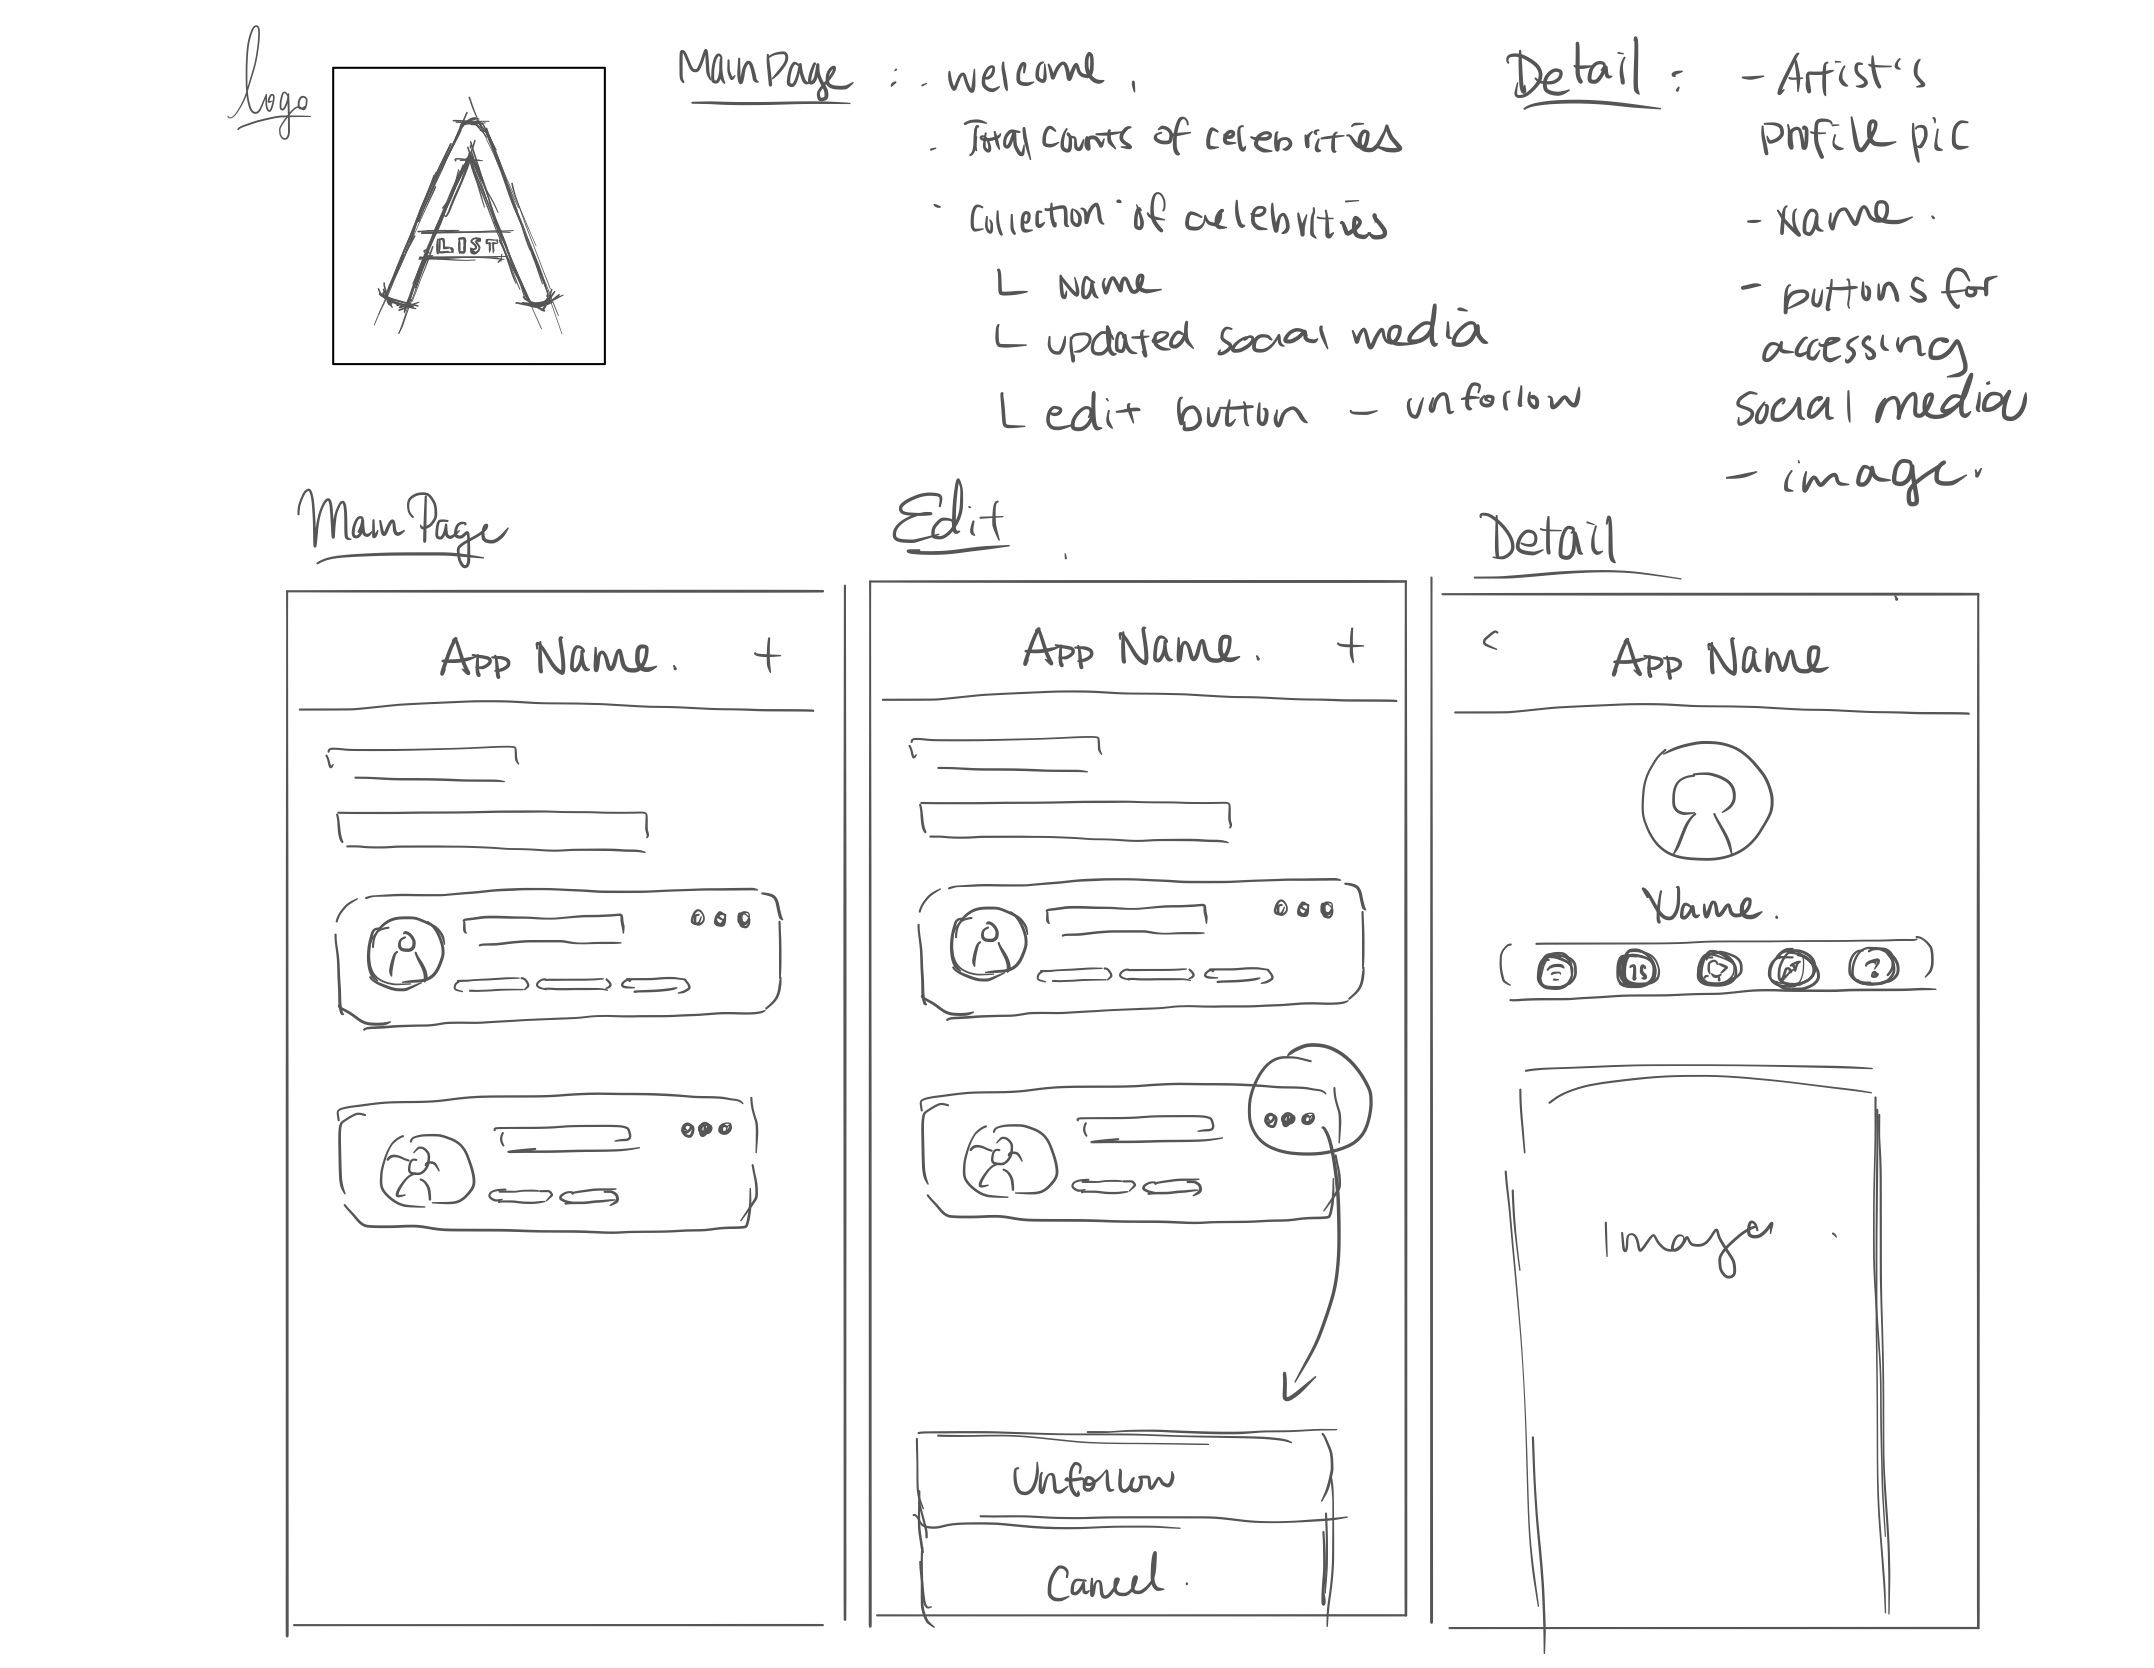 logo
LIST
Main Page : - welcome.
- Total counts of celebrities
- Collection of celebrities
L name
L updated social media
L edit button - unfollow
Detail : - Artist's
profile pic
- Name.
- buttons for
accessing
social media
- image.
Main Page
App Name. +
Edit
App Name. +
Unfollow
Cancel.
Detail
< App Name
Name.
?
Image.